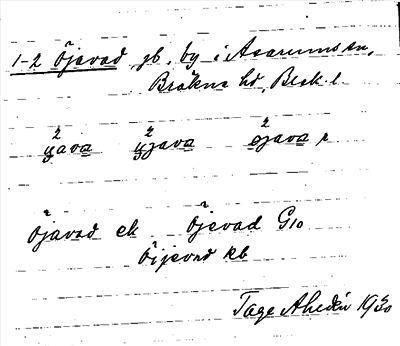 1-2 Öjavad jb. by i Asarums sn,
Bräkne hd, Blek. l.
yava yjava ojava r
Öjavad ek Öjevad G10
Öijevad kb
Tage Ahldén 1930